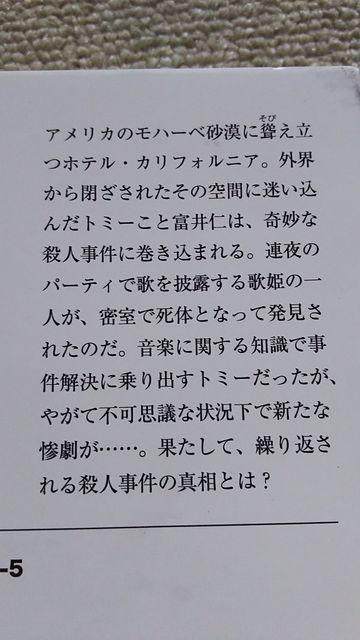 アメリカのモハーベ砂漠に聳え立
そび
つホテル・カリフォルニア。外界
から閉ざされたその空間に迷い込
んだトミーこと富井仁は、奇妙な
殺人事件に巻き込まれる。連夜の
パーティで歌を披露する歌姫の一
人が、密室で死体となって発見さ
れたのだ。音楽に関する知識で事
件解決に乗り出すトミーだったが、
やがて不可思議な状況下で新たな
惨劇が……。果たして、繰り返さ
れる殺人事件の真相とは?
-5